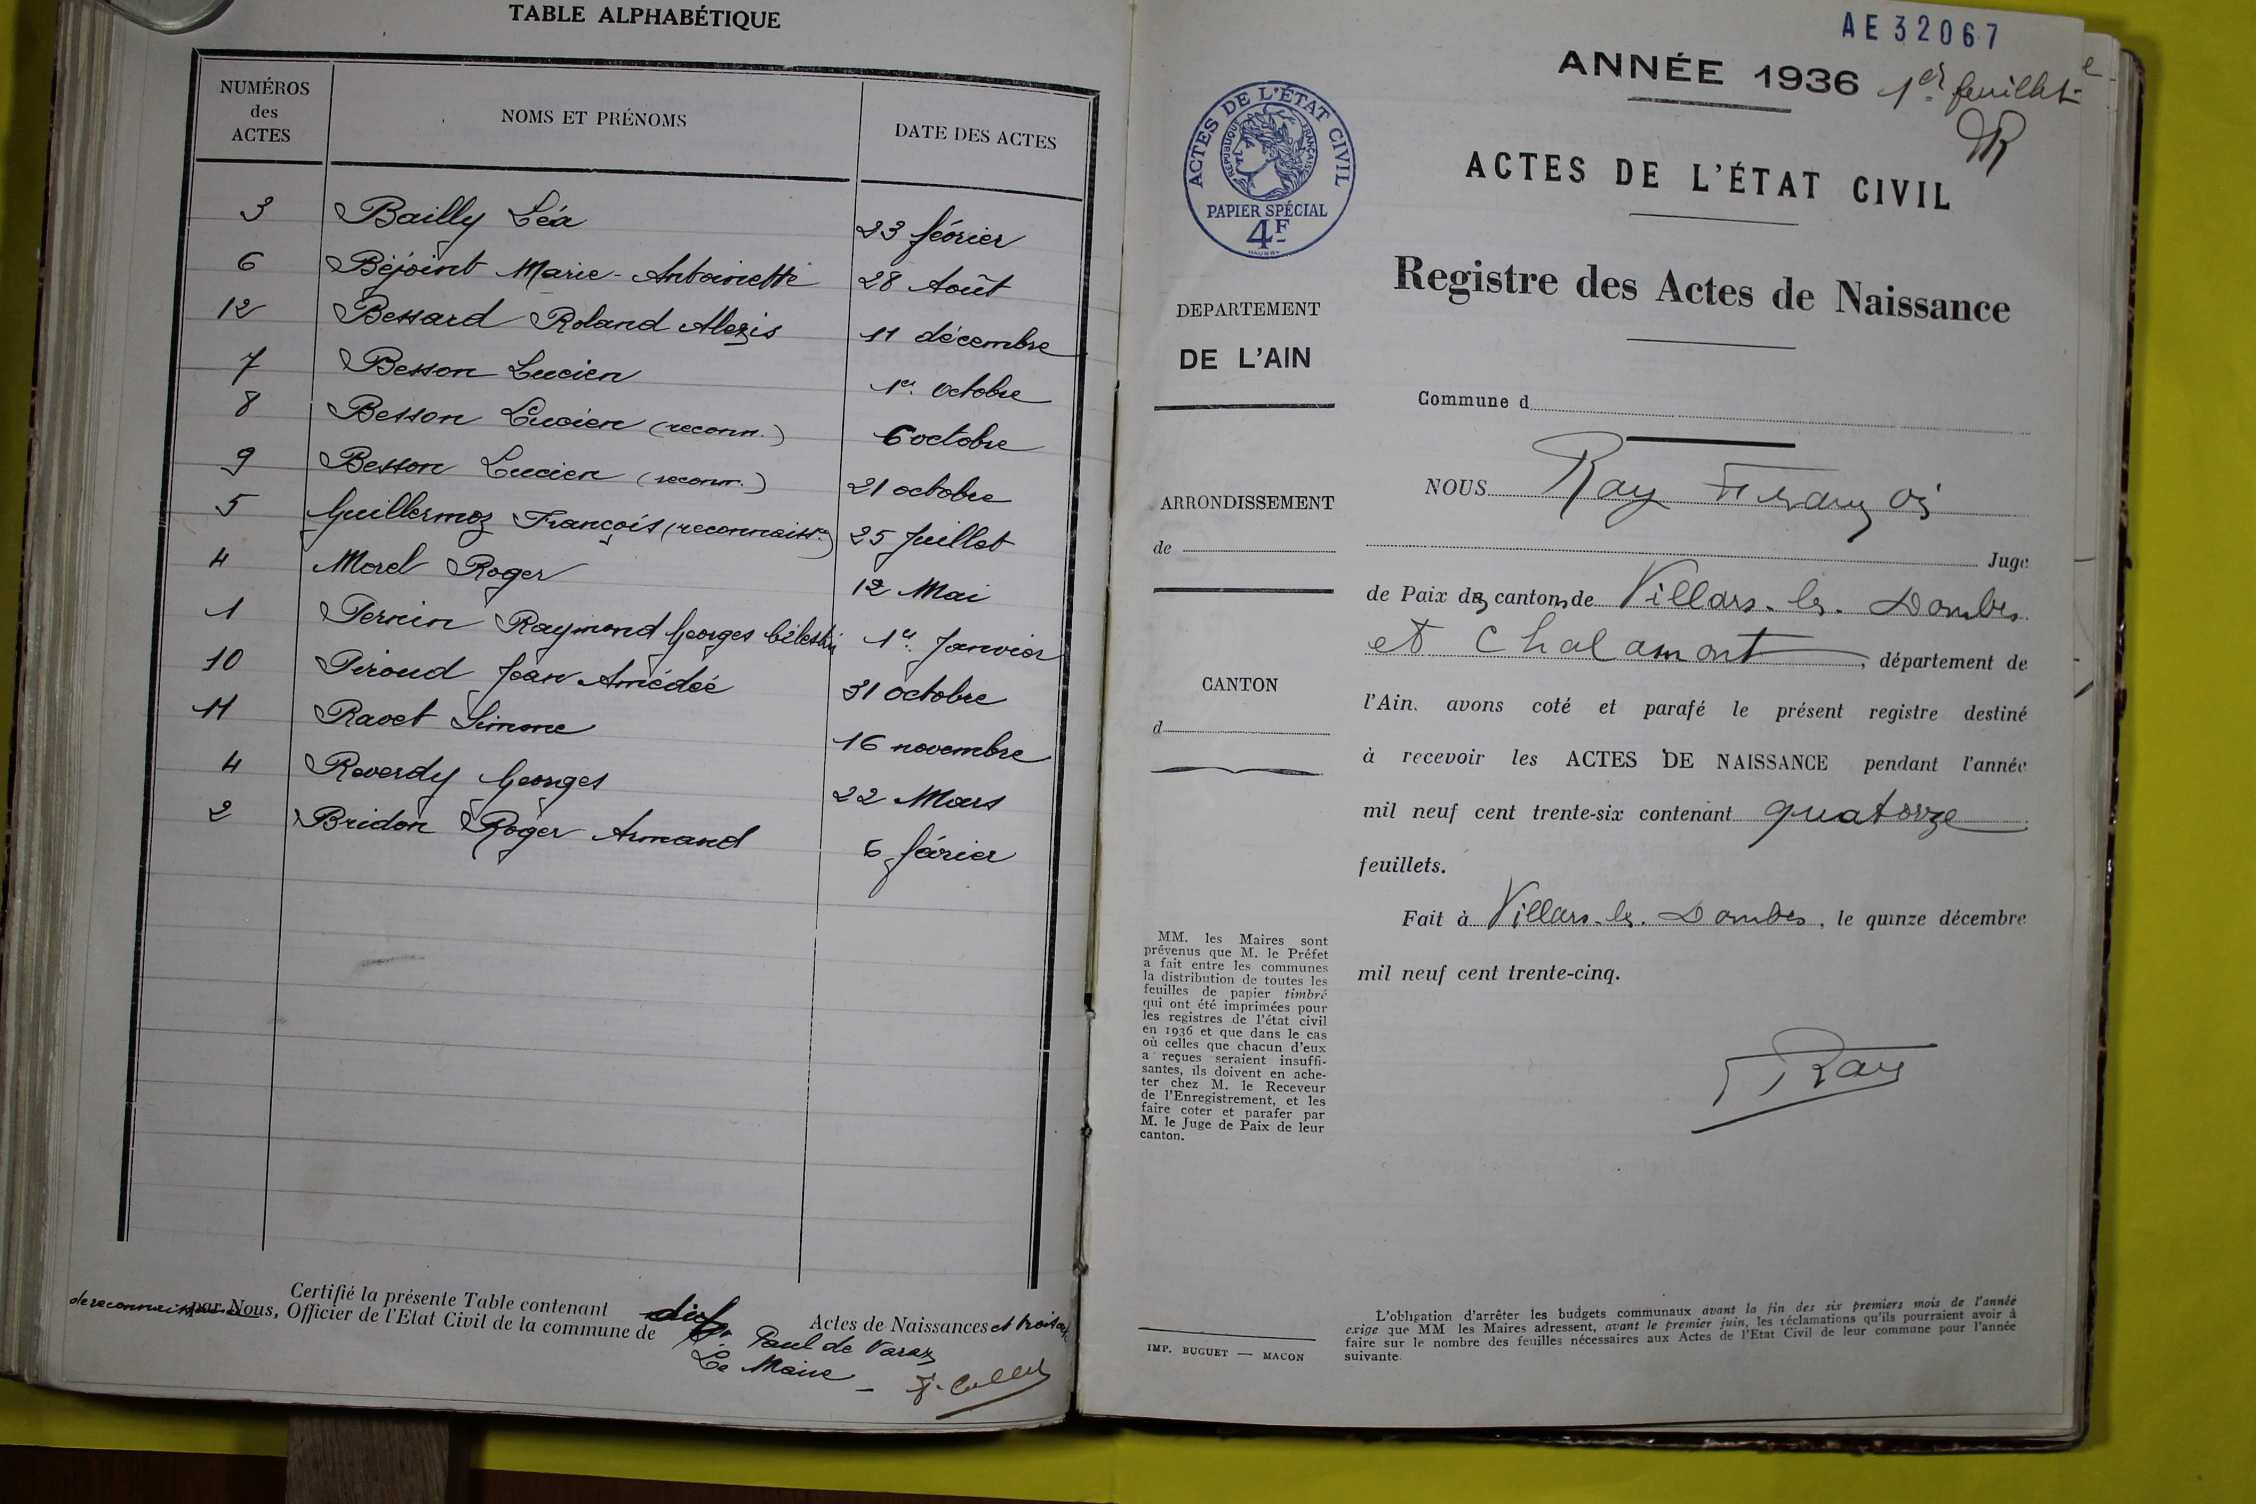 TABLE ALPHABÉTIQUE
NUMÉROS
des
ACTES
NOMS ET PRÉNOMS
DATE DES ACTES
3 Bailly Léa 23 février
6 Béjoint Marie-Antoinette 28 Août
12 Bessard Roland Alexis 11 décembre
7 Besson Lucien 1er octobre
8 Besson Lucien (reconn.) 6 octobre
9 Besson Lucien (reconn.) 21 octobre
5 Guillermoz François (reconnaiss.ce) 25 Juillet
4 Morel Roger 12 Mai
1 Pernin Raymond Georges Célestin 1er Janvier
10 Piroud Jean Amédéé 31 octobre
11 Ravet Simone 16 novembre
4 Reverdy Georges 22 Mars
2 Bridon Roger Armand 6 février
Certifié la présente Table contenant dix Actes de Naissances et trois actes
de reconnaissance par Nous, Officier de l'Etat Civil de la commune de
St Paul de Varax
Le Maire
AE32067
ANNÉE 1936 1er feuillet
ACTES DE L'ÉTAT CIVIL
RÉPUBLIQUE FRANÇAISE
PAPIER SPÉCIAL
4F
ACTES DE L'ÉTAT CIVIL
Registre des Actes de Naissance
DEPARTEMENT
DE L'AIN
ARRONDISSEMENT
de
CANTON
d
MM. les Maires sont
prévenus que M. le Préfet
a fait entre les communes
la distribution de toutes les
feuilles de papier timbré
qui ont été imprimées pour
les registres de l'état civil
en 1936 et que dans le cas
où celles que chacun d'eux
a reçues seraient insuffi-
santes, ils doivent en ache-
ter chez M. le Receveur
de l'Enregistrement, et les
faire coter et parafer par
M. le Juge de Paix de leur
canton.
IMP. BUGUET — MACON
Commune d
NOUS Ray François
Juge
de Paix des cantons de Villars-les-Dombes
et Chalamont, département de
l'Ain. avons coté et parafé le présent registre destiné
à recevoir les ACTES DE NAISSANCE pendant l'année
mil neuf cent trente-six contenant quatorze
feuillets.
Fait à Villars-les-Dombes, le quinze décembre
mil neuf cent trente-cinq.
Ray
L'obligation d'arrêter les budgets communaux avant la fin des six premiers mois de l'année
exige que MM les Maires adressent, avant le premier juin, les réclamations qu'ils pourraient avoir à
faire sur le nombre des feuilles nécessaires aux Actes de l'Etat Civil de leur commune pour l'année
suivante.